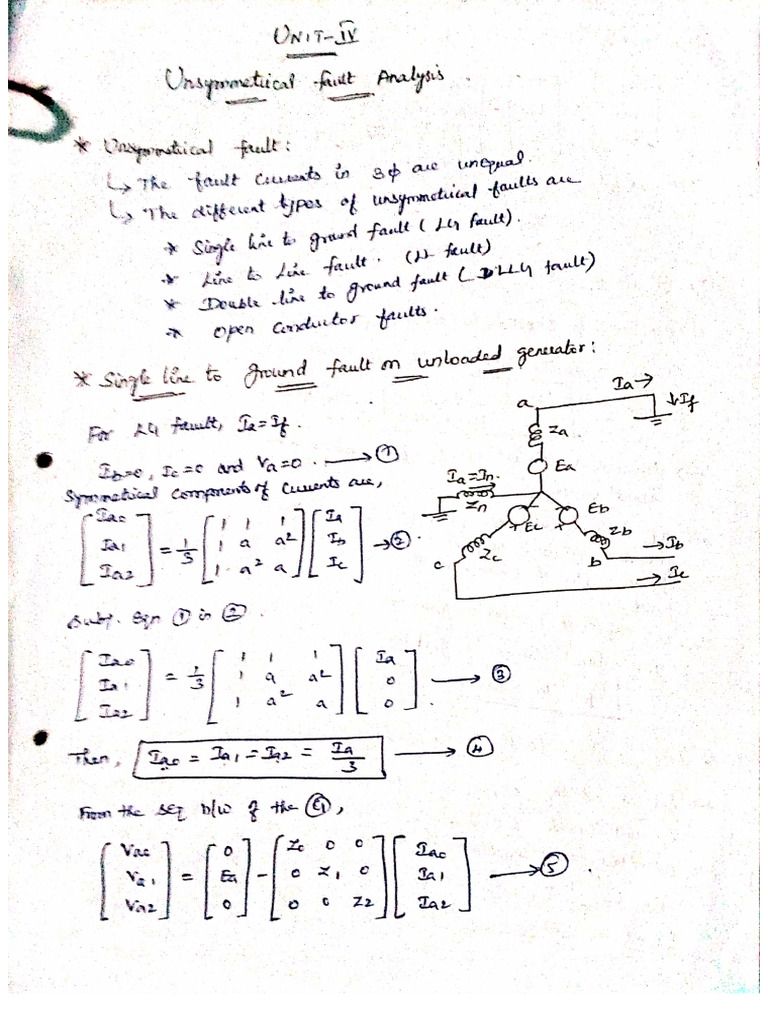 UNIT-IV
Unsymmetrical fault Analysis.
* Unsymmetrical fault:
↳ The fault currents in 3ϕ are unequal.
↳ The different types of unsymmetrical faults are
* Single line to ground fault (LG fault).
* Line to Line fault. (LL fault)
* Double line to ground fault (LLG fault)
* open conductor faults.
* Single line to ground fault on unloaded generator:
For LG fault, Ia=If.
Ib=0, Ic=0 and Va=0. → ①
Symmetrical components of currents are,
[Iao Ia1 Ia2] = 1/3 [1 1 1; 1 a a²; 1 a² a] [Ia Ib Ic] → ②
a
Ia →
↓If
Za
Ea
Ia=In
Zn
Ec
Eb
Zc
Zb
c
b
→Ib
→Ic
Subt. Eqn ① in ②.
[Iao Ia1 Ia2] = 1/3 [1 1 1; 1 a a²; 1 a² a] [Ia 0 0] → ③
Then, Iao = Ia1 = Ia2 = Ia/3 → ④
From the seq n/w of the G,
[Vao Va1 Va2] = [0 Ea 0] - [Zo 0 0; 0 Z1 0; 0 0 Z2] [Iao Ia1 Ia2] → ⑤.